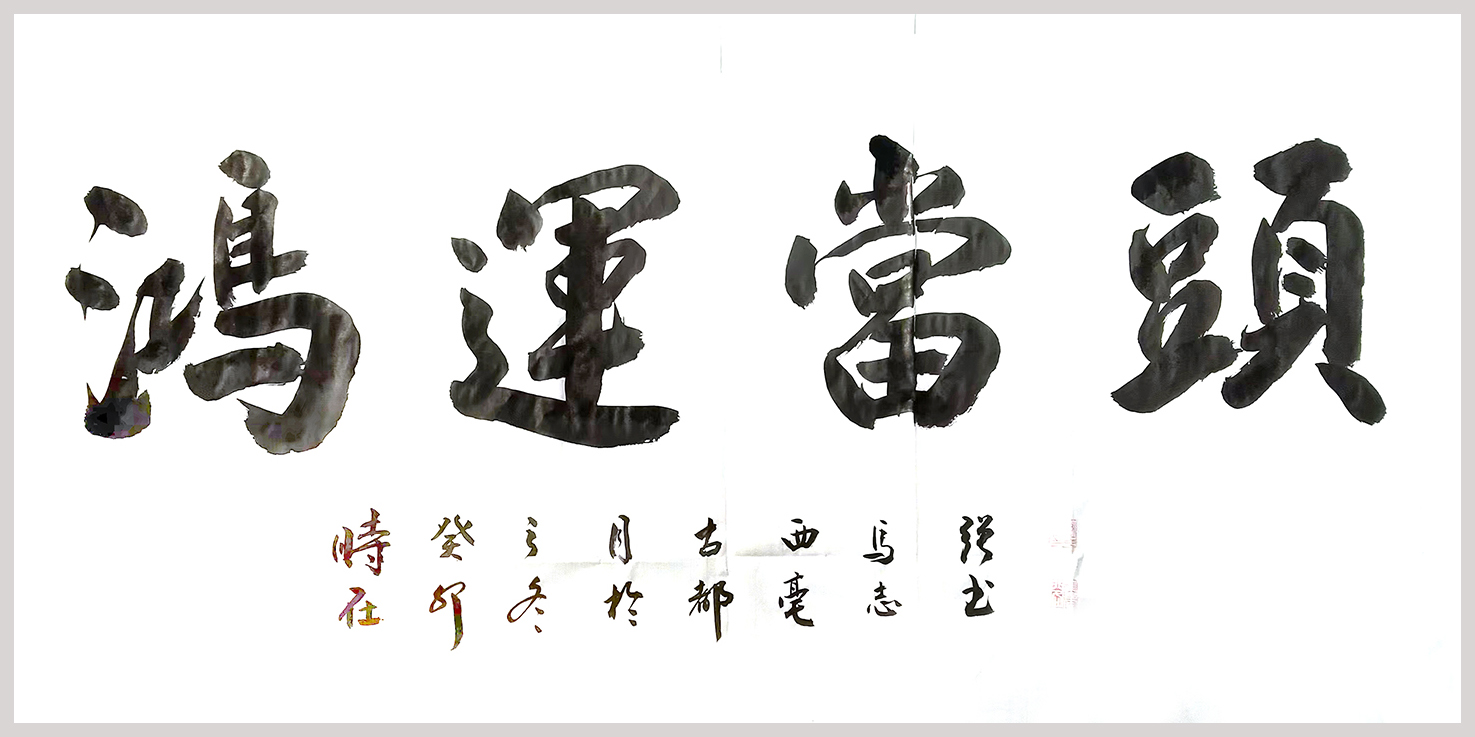 鴻運當頭
時在
癸卯
之冬
月於
古都
西亳
馬志
强书